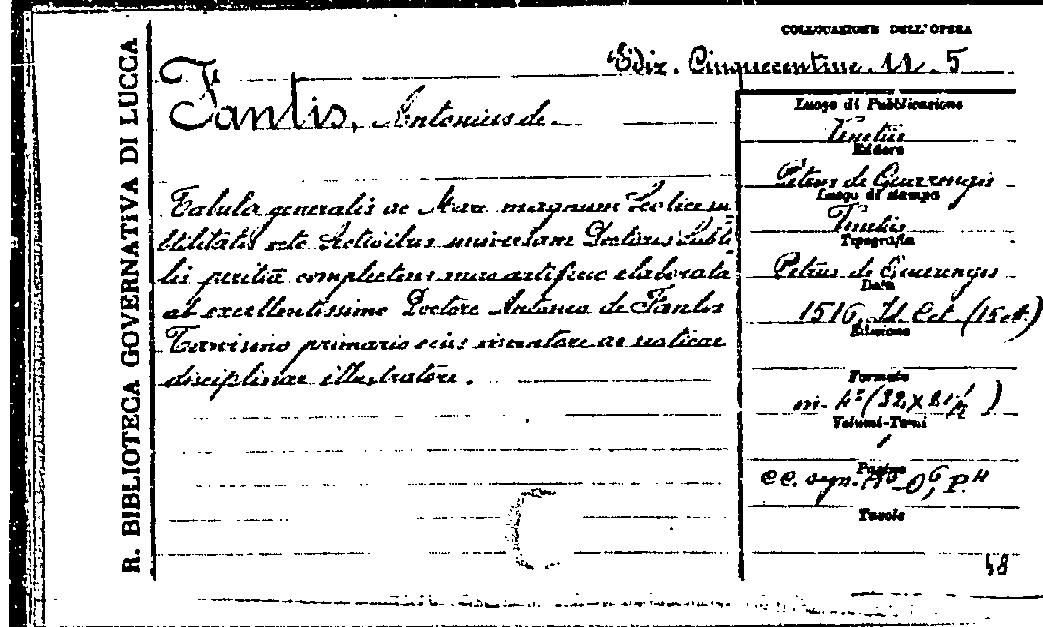 R. BIBLIOTECA GOVERNATIVA DI LUCCA
COLLOCAZIONE DELL'OPERA
Ediz. Cinquecentine 11. 5
Fantis, Antonius de
Tabula generalis ac Mare magnum Scotice su
btilitatis octo Sectionibus universam Doctoris Subti
lis peritiã complectens mira artificio elaborata
ab excellentissimo Doctore Antonio de Fantis
Tarvisino primario eius inventore ac scoticae
disciplinae illustratore.
Luogo di Pubblicazione
Venetiis
Editore
Petrus de Quarengis
Luogo di stampa
Venetiis
Tipografia
Petrus de Quarengis
Data
1516, Id. Oct. (15 ott.)
Edizione
Formato
in-4° (32 x 21 1/2)
Volumi-Tomi
Pagine
cc. segn. A6-O6, P4
Tavole
48